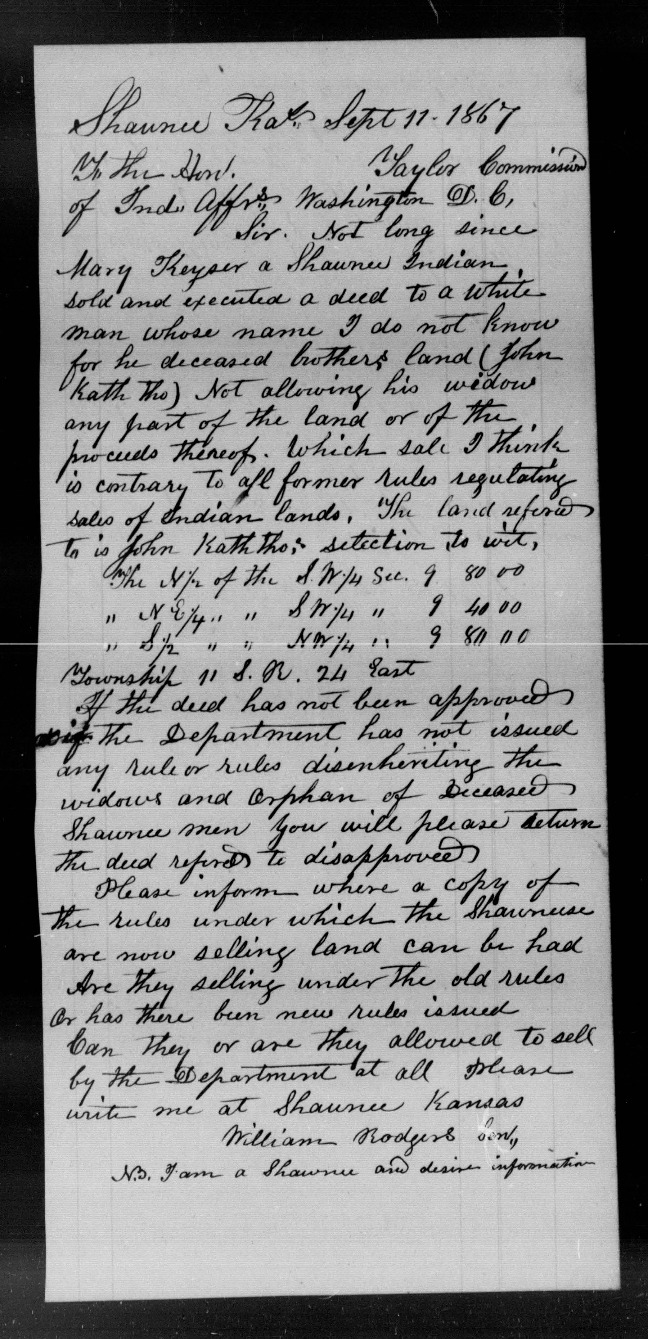 Shawnee Kas. Sept 11. 1867
To the Hon. Taylor Commission
of Ind. Affrs. Washington D. C,
Sir. Not long since
Mary Keyser a Shawnee Indian
sold and executed a deed to a white
man whose name I do not know
for he deceased brothers land (John
Kath tho) Not allowing his widow
any part of the land or of the
proceeds thereof. Which sale I think
is contrary to all former rules regulating
sales of Indian lands. The land refered
to is John Kaththo,s selection to wit,
The N 1/2 of the S. W 1/4 Sec. 9 80 00
" N E 1/4 " " S W 1/4 " 9 40 00
" S 1/2 " " N W 1/4 " 9 80 00
Township 11 S. R. 24 East
If the deed has not been approved
if the Department has not issued
any rule or rules disenheriting the
widows and Orphan of Deceased
Shawnee men you will please return
the deed refered to disapproved
Please inform where a copy of
the rules under which the Shawneese
are now selling land can be had
Are they selling under the old rules
Or has there been new rules issued
Can they or are they allowed to sell
by the Department at all Please
write me at Shawnee Kansas
William Rodgers Sen,,
N.B. I am a Shawnee and desire information